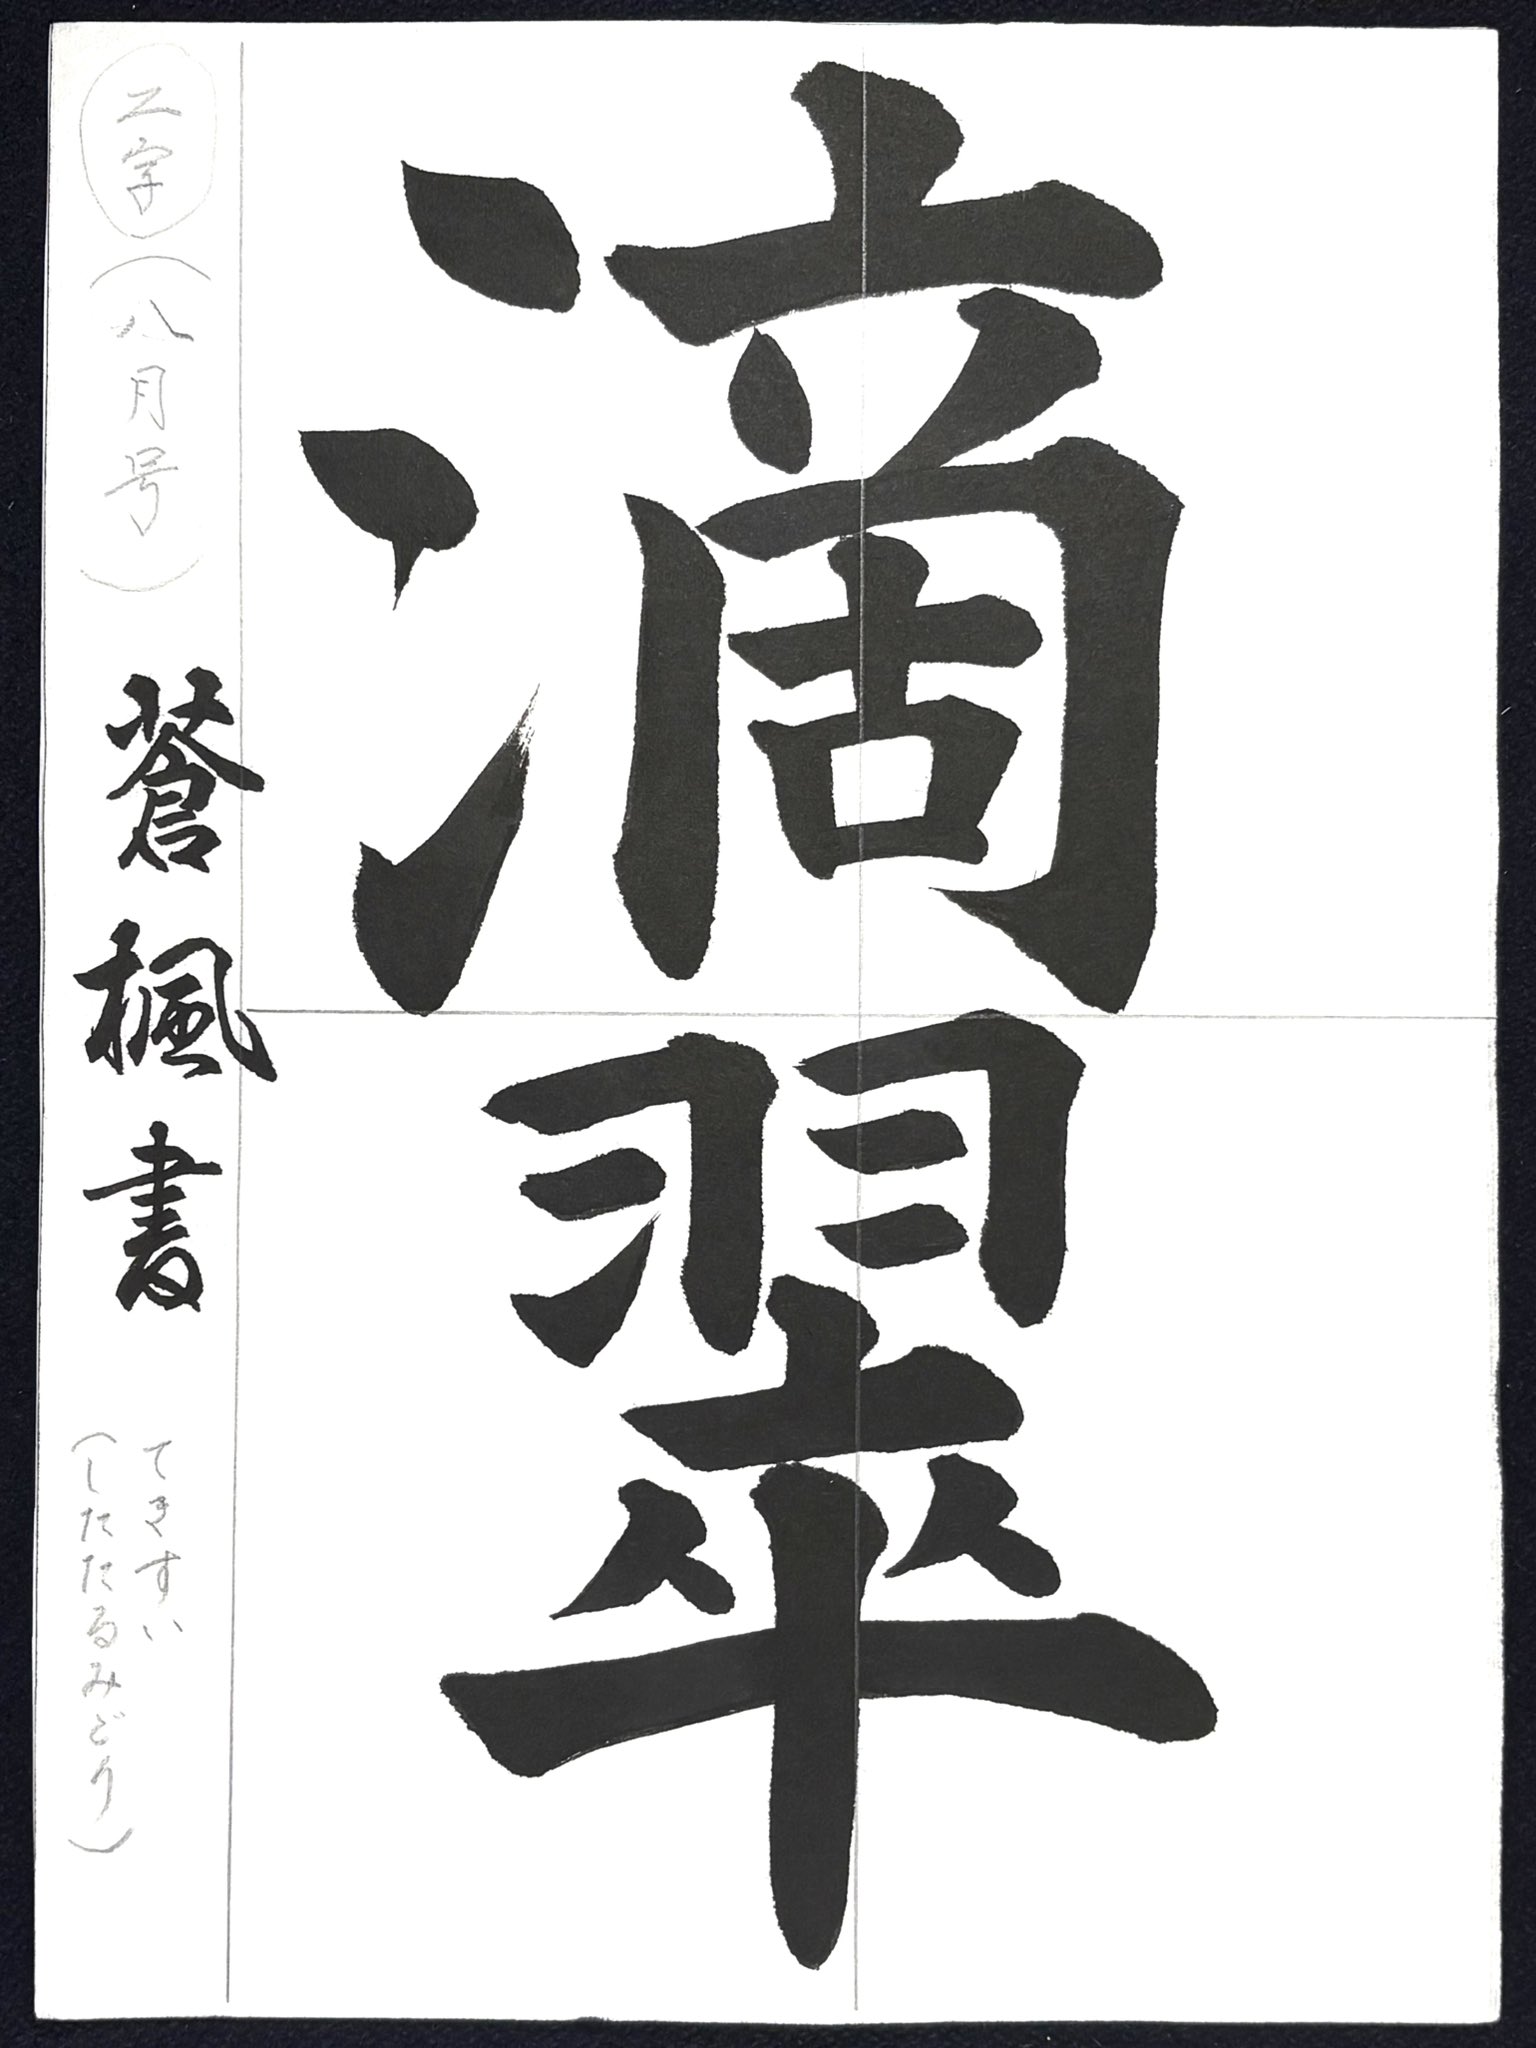 滴翠
二字(八月号)
蒼楓書
てきすい
(したたるみどり)